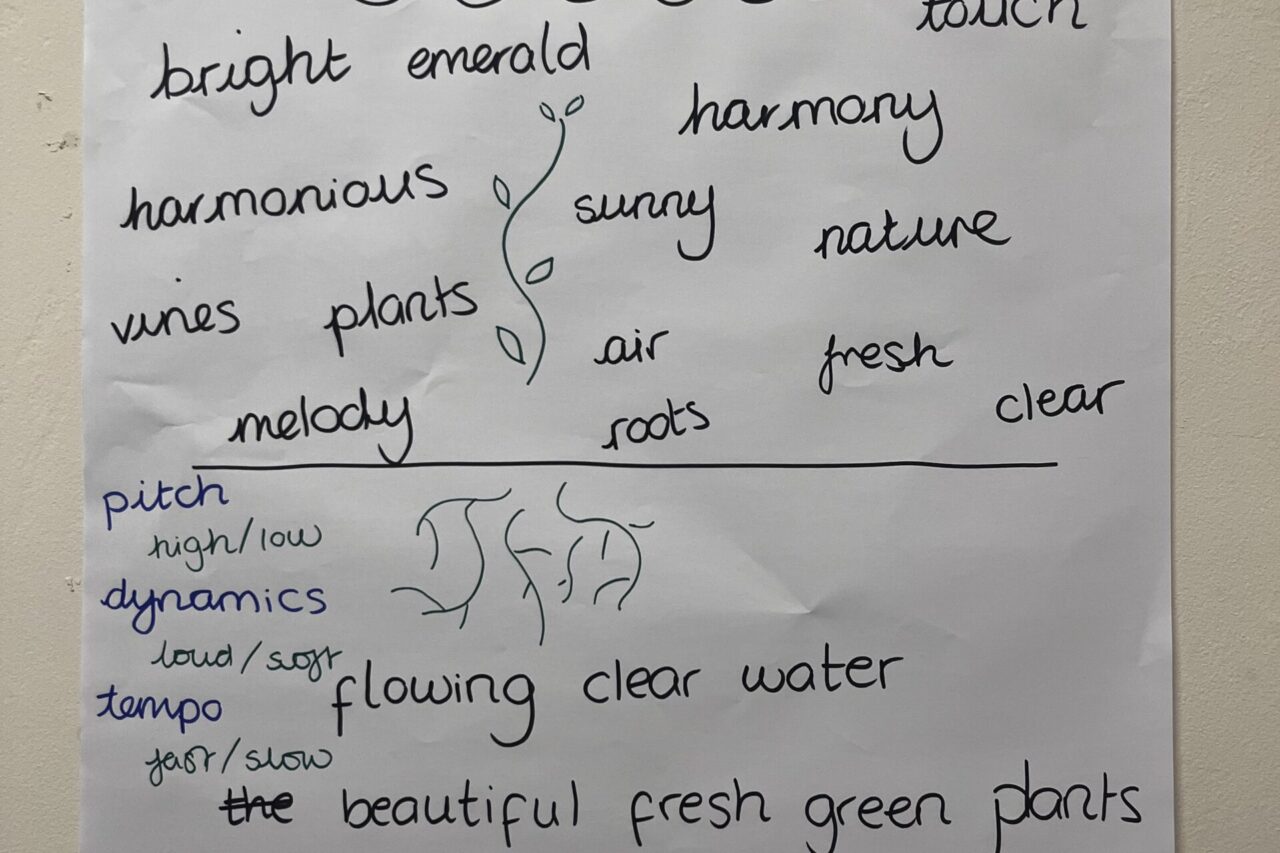 touch
bright emerald
harmony
harmonious
sunny
nature
vines plants
air
fresh
clear
melody
roots
pitch
high/low
dynamics
loud/soft
flowing clear water
tempo
fast/slow
the beautiful fresh green plants